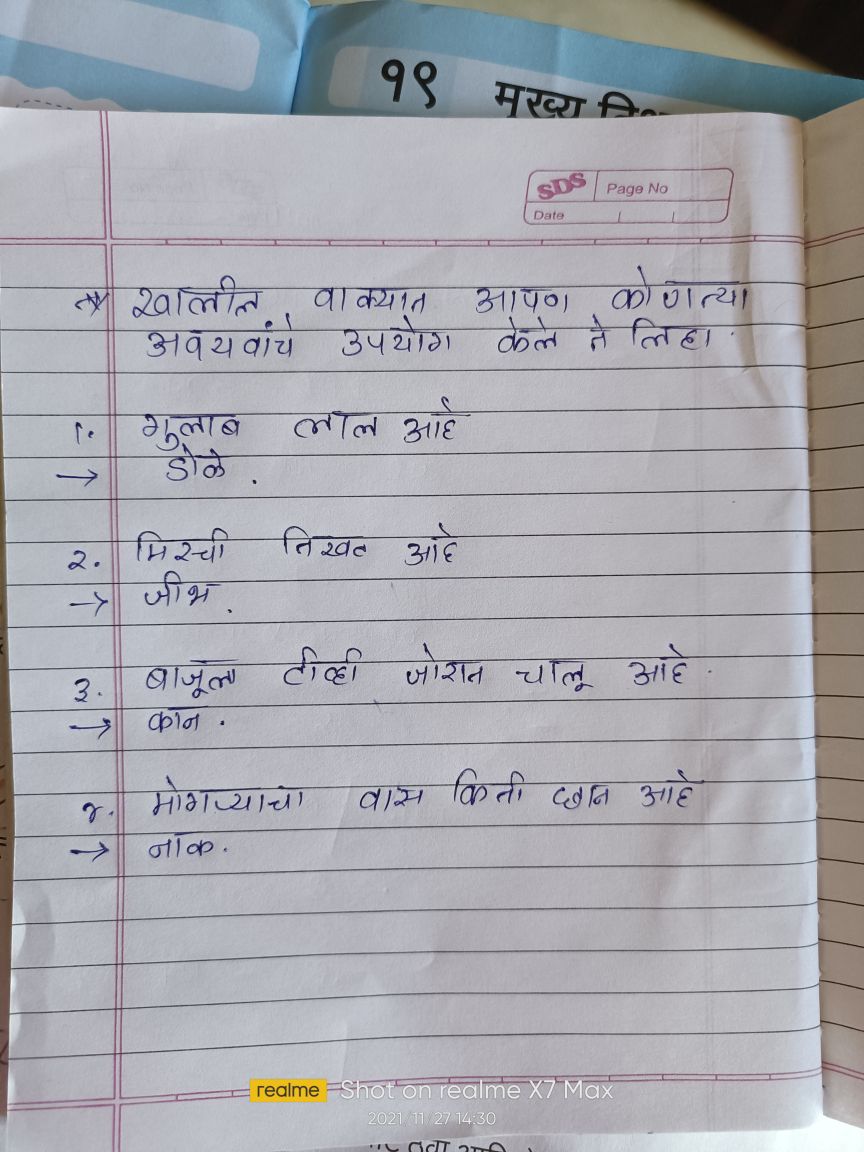 १९ मुख्य
SDS Page No
Date
खालील वाक्यात आपण कोणत्या
अवयवांचे उपयोग केले ते लिहा.
१. गुलाब लाल आहे
→ डोळे.
२. मिरची तिखट आहे
→ जीभ.
३. बाजूला टीव्ही जोरात चालू आहे.
→ कान.
४. मोगऱ्याचा वास किती छान आहे
→ नाक.
realme Shot on realme X7 Max
2021/11/27 14:30